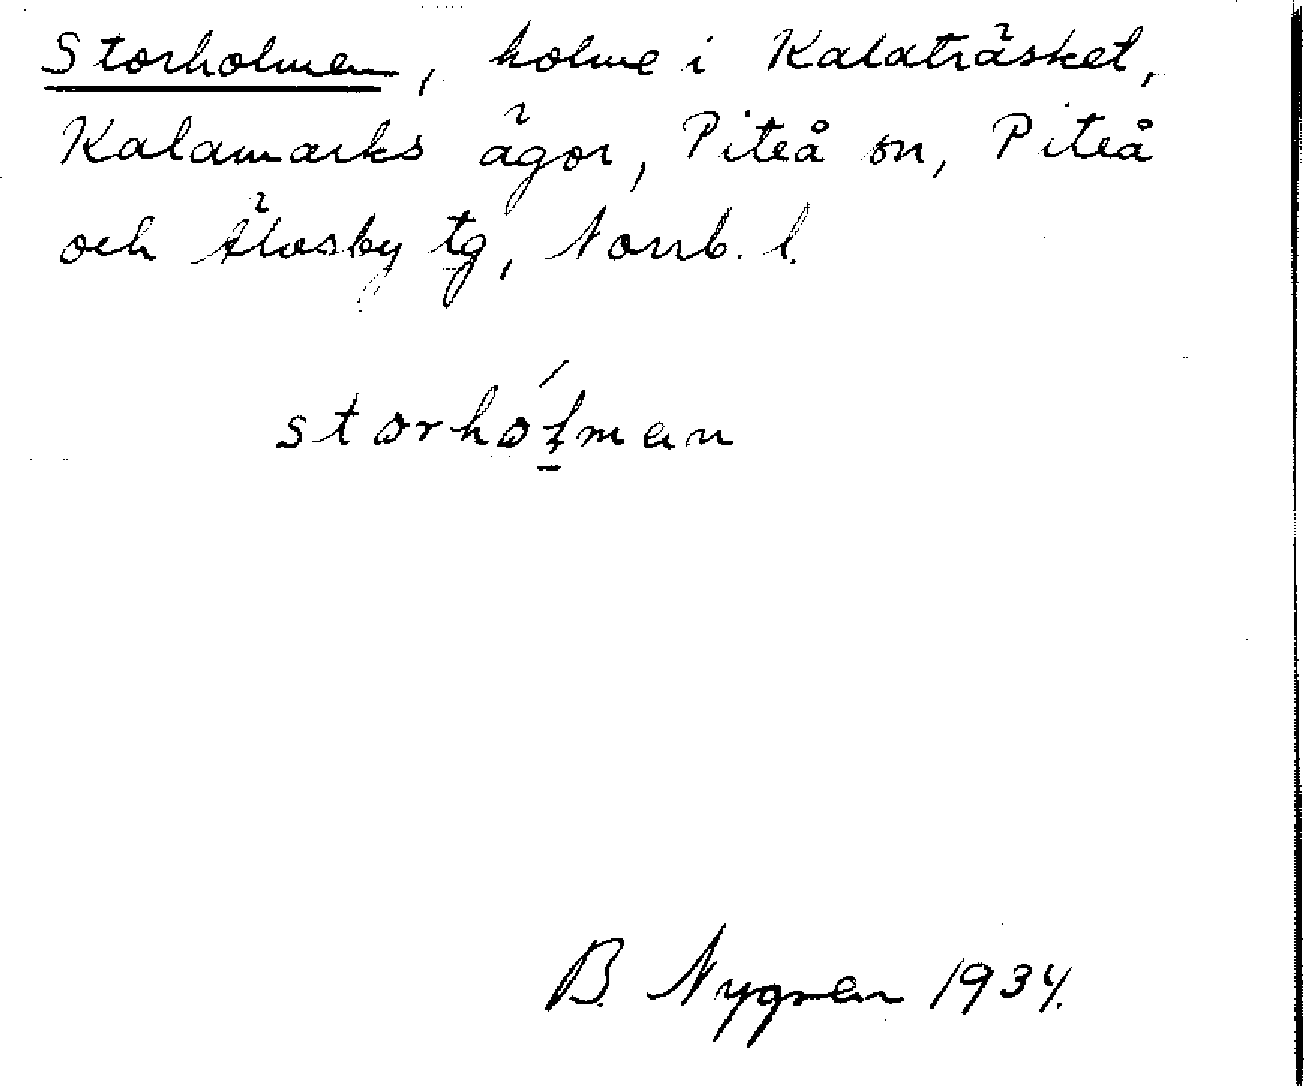 Storholmen, holme i Kalaträsket,
Kalamarks ägor, Piteå sn, Piteå
och Älvsby tg, Norrb. l.
storhólman
B. Nygren 1934.